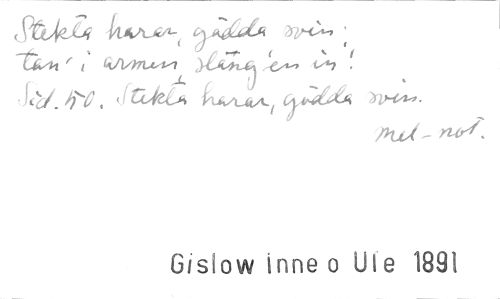 Stekta harar, gödda svin;
tan' i armen, släng'en in!
Sid. 50. Stekta harar, gödda svin.
mel-not.
Gislow Inne o Ute 1891